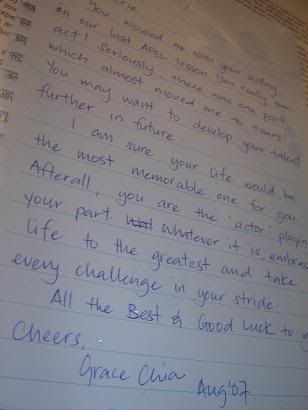 You wowed me with your acting
on our last AOA lesson. You really can
act! Seriously, there was one part
which almost moved me to tears!
You may want to develop your talent
further in future
I am sure your life would be
the most memorable one for you.
Afterall, you are the 'actor' playing
your part. Whatever it is, embrace
life to the greatest and take
every challenge in your stride.
All the Best & Good Luck to
Cheers,
Grace Chia
Aug'07.